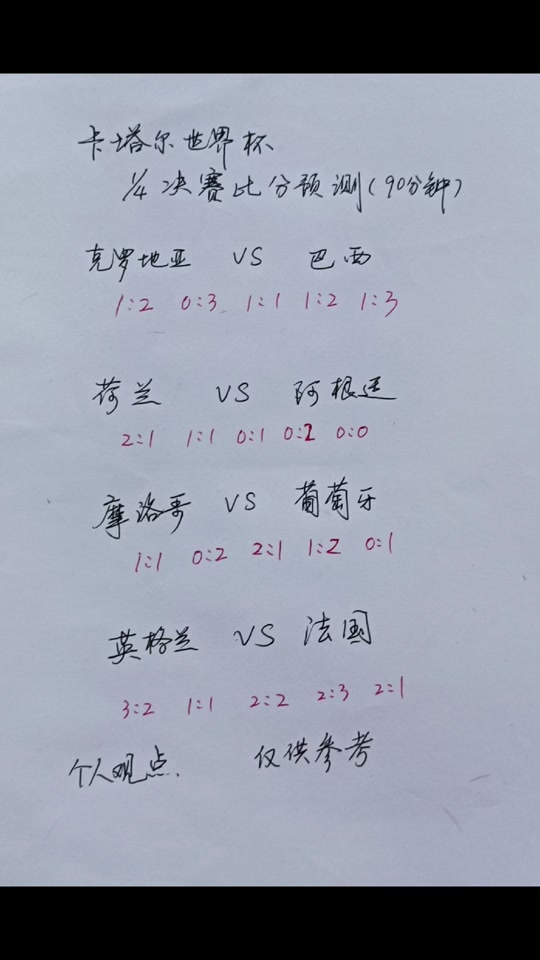 卡塔尔世界杯
1/4决赛比分预测(90分钟)
克罗地亚 VS 巴西
1:2 0:3 1:1 1:2 1:3
荷兰 VS 阿根廷
2:1 1:1 0:1 0:2 0:0
摩洛哥 VS 葡萄牙
1:1 0:2 2:1 1:2 0:1
英格兰 VS 法国
3:2 1:1 2:2 2:3 2:1
个人观点. 仅供参考